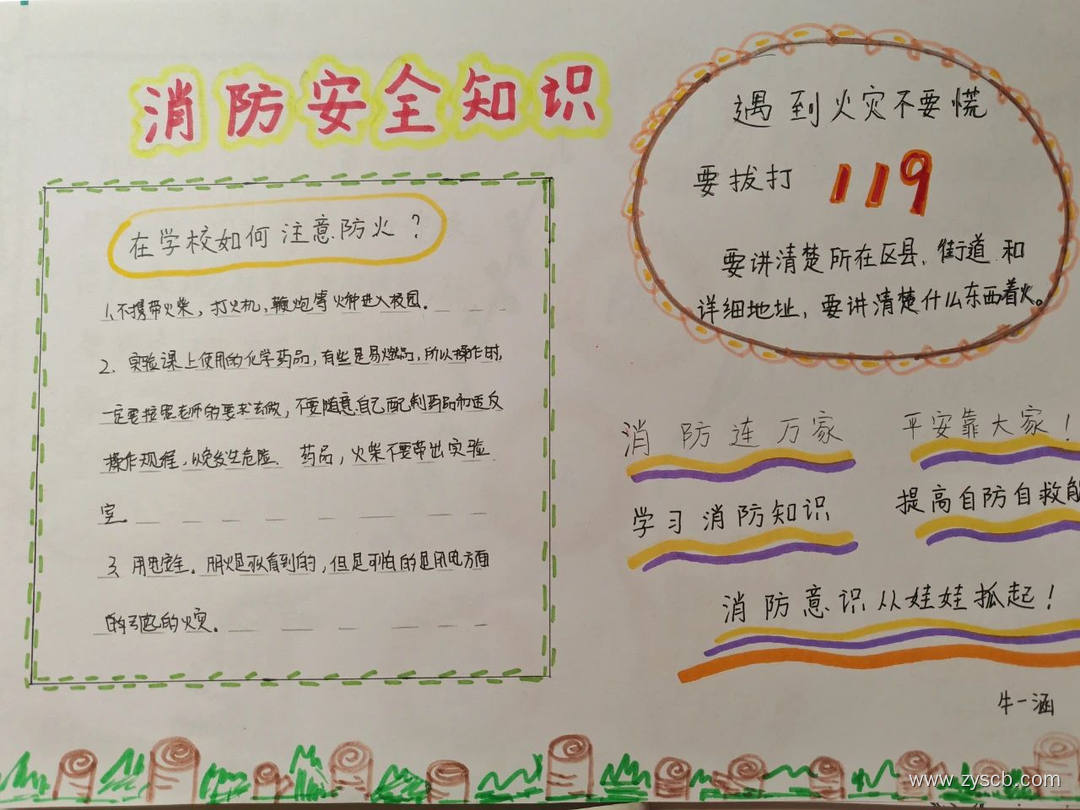 消防安全知识
在学校如何注意防火？
1、不携带火柴，打火机，鞭炮等火种进入校园。
2、实验课上使用的化学药品，有些是易燃品，所以操作时，
一定要按照老师的要求去做，不要随意自己配制药品和违反
操作规程，以免发生危险、药品，火柴不要带出实验
室
3、用电安全。明火是可以看到的，但是可怕的是用电方面
的引起的火灾。
遇到火灾不要慌
要拔打 119
要讲清楚所在区县、街道 和
详细地址，要讲清楚什么东西着火。
消防连万家 平安靠大家！
学习消防知识 提高自防自救能
消防意识从娃娃抓起！
牛一涵
www.zyscb.com